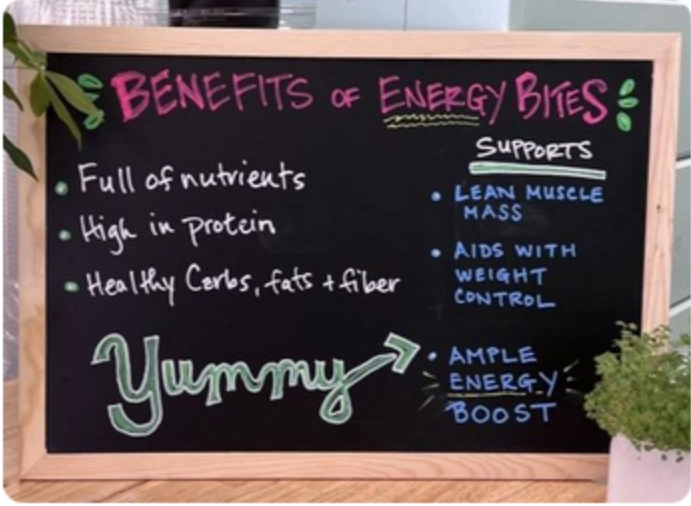 BENEFITS OF ENERGY BITES
• Full of nutrients
• High in protein
• Healthy Carbs, fats + fiber
Yummy
SUPPORTS
• LEAN MUSCLE
MASS
• AIDS WITH
WEIGHT
CONTROL
• AMPLE
ENERGY
BOOST